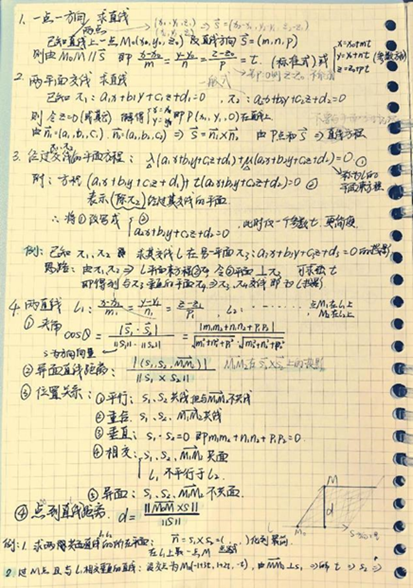 1. 一点一方向 求直线
两点 (x₁,y₁,z₁)
已知直线上一点 M₀(x₀,y₀,z₀) 及直线方向 s⃗=(m,n,p)
则由 M₀M∥s⃗ 即 x-x₀/m = y-y₀/n = z-z₀/p = t. (标准式) 或 { x=x₀+mt y=y₀+nt z=z₀+pt (参数方程)
2. 两平面交线 求直线
已知 π₁: a₁x+b₁y+c₁z+d₁=0 , π₂: a₂x+b₂y+c₂z+d₂=0
则令 z=0 解得 即 P(x₁,y₁,0) 在直线上
由 n⃗₁(a₁,b₁,c₁). n⃗₂(a₂,b₂,c₂) ⇒ s⃗=n⃗₁×n⃗₂ 由P点和s⃗ ⇒ 直线方程
3. 经过交线的平面方程: λ(a₁x+b₁y+c₁z+d₁)+μ(a₂x+b₂y+c₂z+d₂)=0 ①
则: 方程 (a₁x+b₁y+c₁z+d₁)+t(a₂x+b₂y+c₂z+d₂)=0 ②
表示(除π₂)经过其交线的平面
∴ 将①改写成 { ② a₂x+b₂y+c₂z+d₂=0 此时仅一个参数t 更简便
例: 已知 π₁, π₂ 求其交线L在另一平面π₃: a₃x+b₃y+c₃z+d₃=0
思路: 由π₁,π₂ ⇒ L平面束方程 令 ⊥π₃ 可求t
即得到与π₃垂直的平面π₄ ⇒ π₃,π₄交线即为
4. 两直线 L₁: x-x₁/m₁ = y-y₁/n₁ = z-z₁/p₁ L₂: …… M₁在L₁上 M₂在L₂上
① 夹角 cosθ = |s⃗₁·s⃗₂| / ‖s₁‖·‖s₂‖ = |m₁m₂+n₁n₂+p₁p₂| / √m₁²+n₁²+p₁² · √m₂²+n₂²+p₂²
s为方向向量
② 异面直线距离: |(s₁,s₂,M₁M₂)| / ‖s₁×s₂‖
③ 位置关系: ① 平行: s₁,s₂共线 但与M₁M₂不共线
② 重合: s₁,s₂,M₁M₂共线
③ 垂直: s₁·s₂=0 即 m₁m₂+n₁n₂+p₁p₂=0
④ 相交: { s₁,s₂,M₁M₂ 共面
L₁ 不平行于 L₂.
⑤ 异面: s₁,s₂,M₁M₂ 不共面
④ 点到直线距离 d = ‖M₀M×s‖ / ‖s‖
M
d
例: 1. 求两 直线的所在平面: n⃗=s₁×s₂=( , , )
2. 过M点且与L₁相交垂直的直线: